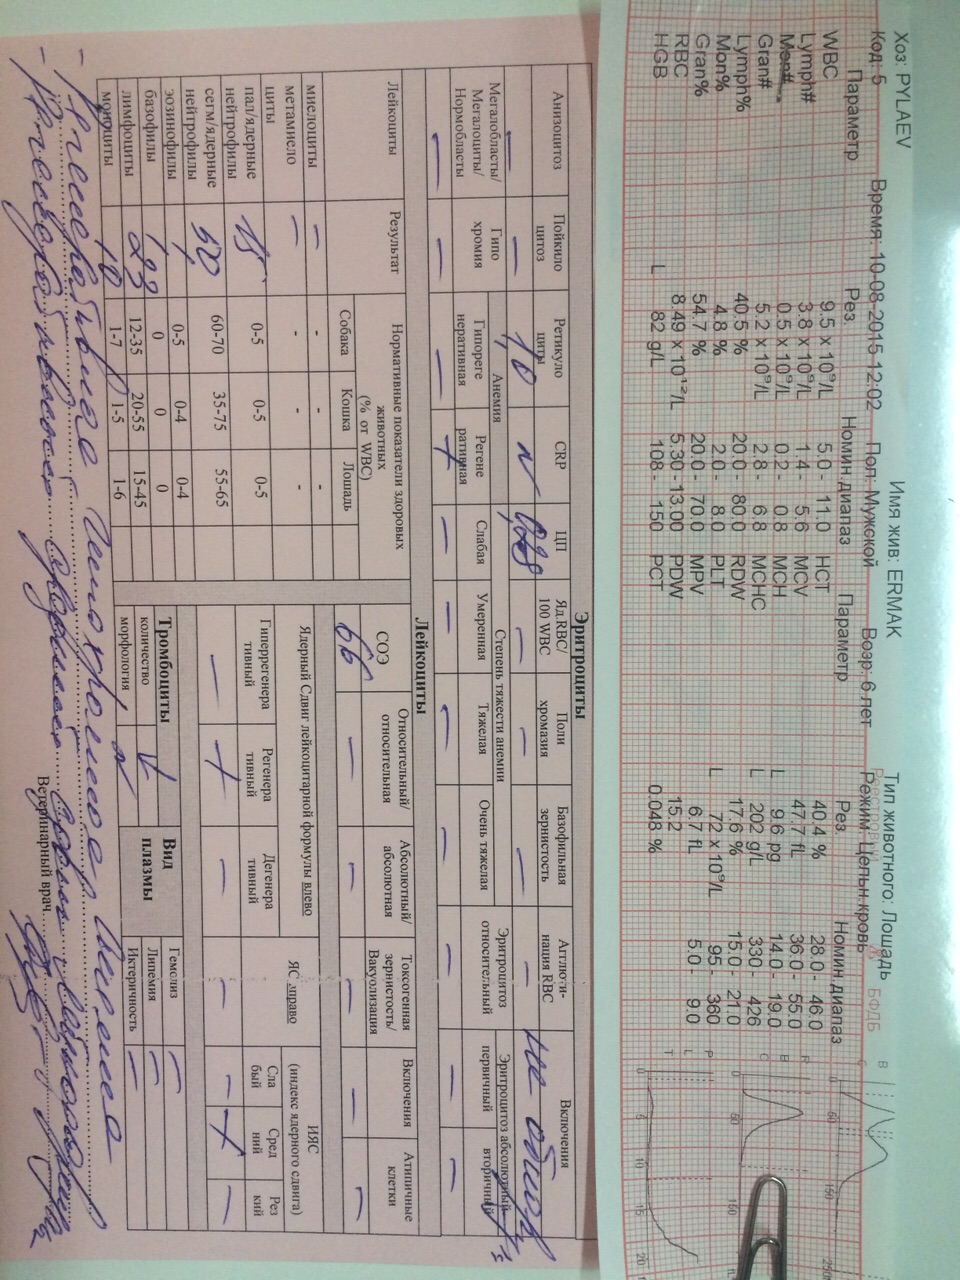 Хоз: PYLAEV Имя жив: ERMAK Тип животного: Лошадь
Код: 5 Время: 10-08-2015 12:02 Пол: Мужской Возр: 6 лет Режим: Цельн.кровь
Параметр Рез. Номин.диапаз Параметр Рез. Номин.диапаз
WBC 9.5 x 10⁹/L 5.0 - 11.0 HCT 40.4 % 28.0 - 46.0
Lymph# 3.8 x 10⁹/L 1.4 - 5.6 MCV 47.7 fL 36.0 - 55.0
Mon# 0.5 x 10⁹/L 0.2 - 0.8 MCH L 9.6 pg 14.0 - 19.0
Gran# 5.2 x 10⁹/L 2.8 - 6.8 MCHC L 202 g/L 330 - 426
Lymph% 40.5 % 20.0 - 80.0 RDW 17.6 % 15.0 - 21.0
Mon% 4.8 % 2.0 - 8.0 PLT L 72 x 10⁹/L 95 - 360
Gran% 54.7 % 20.0 - 70.0 MPV 6.7 fL 5.0 - 9.0
RBC 8.49 x 10¹²/L 5.30 - 13.00 PDW 15.2
HGB L 82 g/L 108 - 150 PCT 0.048 %
Эритроциты
Анизоцитоз Пойкилоцитоз Ретикулоциты CRP ЦП Яд.RBC/100 WBC Полихромазия Базофильная зернистость Агглютинация RBC Включения
— — 10 N — — — —
Мегалобласты/Мегалоциты/Нормобласты Анемия Степень тяжести анемии Эритроцитоз относительный Эритроцитоз абсолютный
Гипохромия Гипорегенеративная Регенеративная Слабая Умеренная Тяжелая Очень тяжелая первичный вторичный
— — — + — — — — — — —
Лейкоциты
Лейкоциты Результат Нормативные показатели здоровых животных (% от WBC)
Собака Кошка Лошадь
миелоциты — - - -
метамиелоциты — - - -
пал/ядерные нейтрофилы 15 0-5 0-5 0-5
сегм/ядерные нейтрофилы 50 60-70 35-75 55-65
эозинофилы 1 0-5 0-4 0-4
базофилы 1 0 0 0
лимфоциты 23 12-35 20-55 15-45
моноциты 10 1-7 1-5 1-6
СОЭ Относительный/относительная Абсолютный/абсолютная Токсогенная зернистость/Вакуолизация Включения Атипичные клетки
66 — — — — —
Ядерный Сдвиг лейкоцитарной формулы влево ЯС вправо ИЯС (индекс ядерного сдвига)
Гиперрегенеративный Регенеративный Дегенеративный Слабый Средний Резкий
— + — — — + —
Тромбоциты Вид плазмы
количество ↓ Гемолиз —
морфология N Липемия —
Иктеричность —
Ветеринарный врач